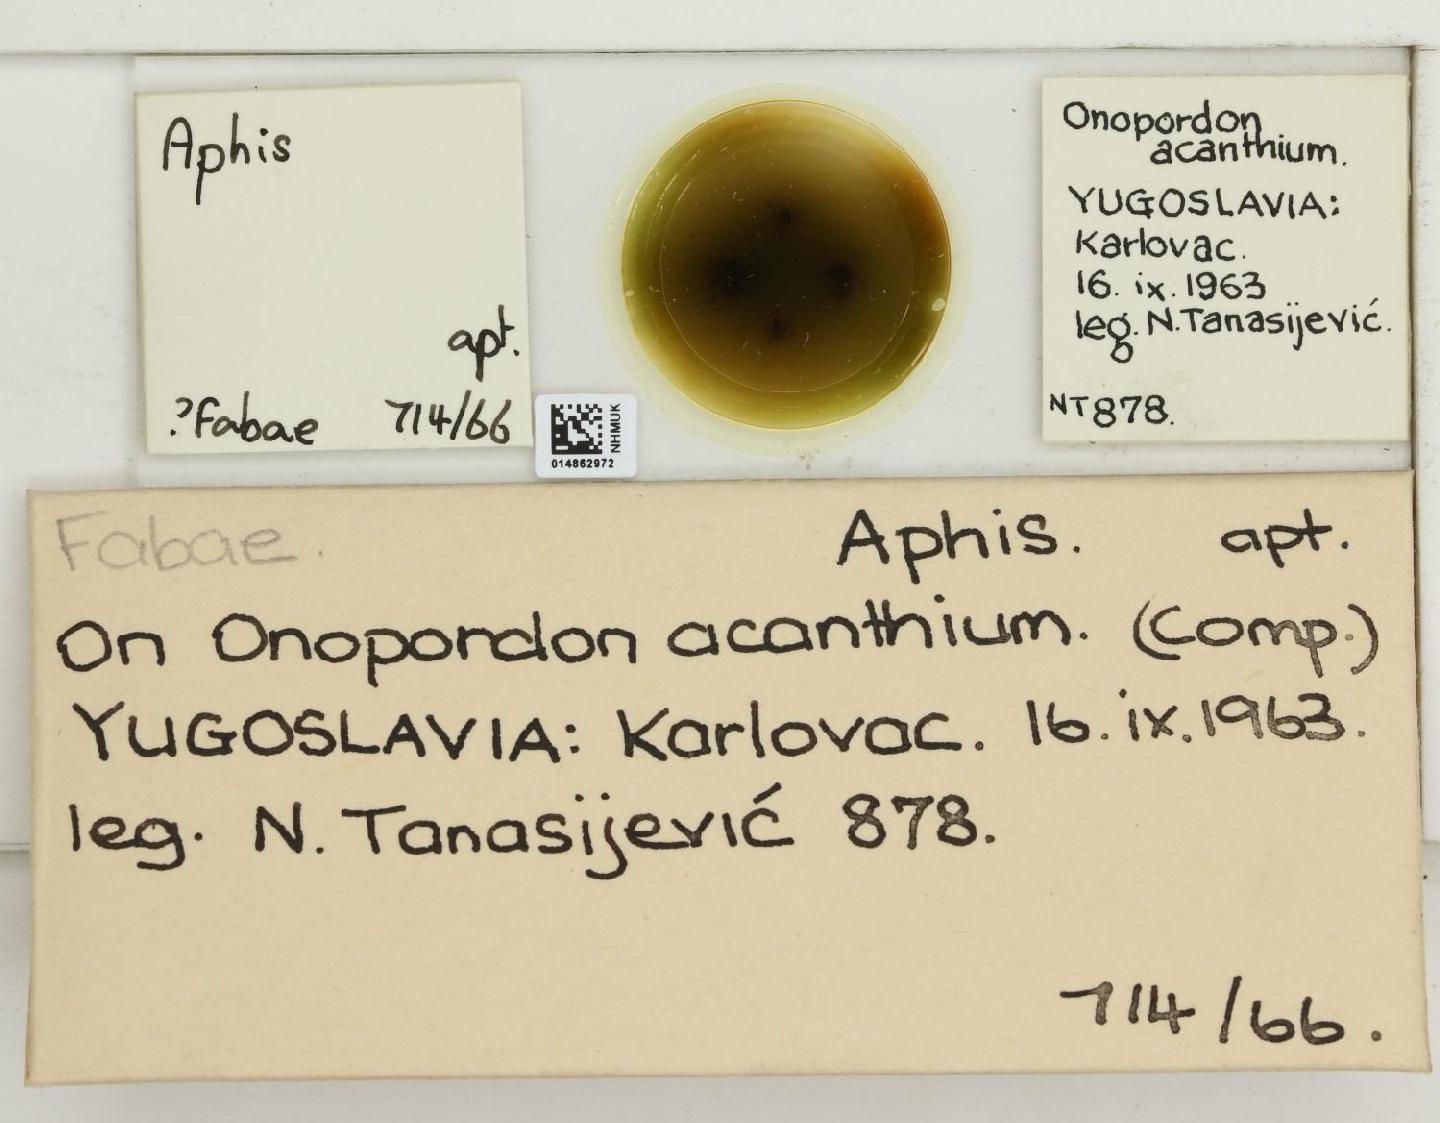 Aphis
apt.
?Fabae 714/66
NHMUK
014862972
Onopordon
acanthium.
YUGOSLAVIA:
Karlovac.
16. ix. 1963
leg. N. Tanasijević.
NT 878.
Fabae. Aphis. apt.
On Onopordon acanthium. (Comp.)
YUGOSLAVIA: Karlovac. 16. ix. 1963.
leg. N. Tanasijević 878.
714/66.